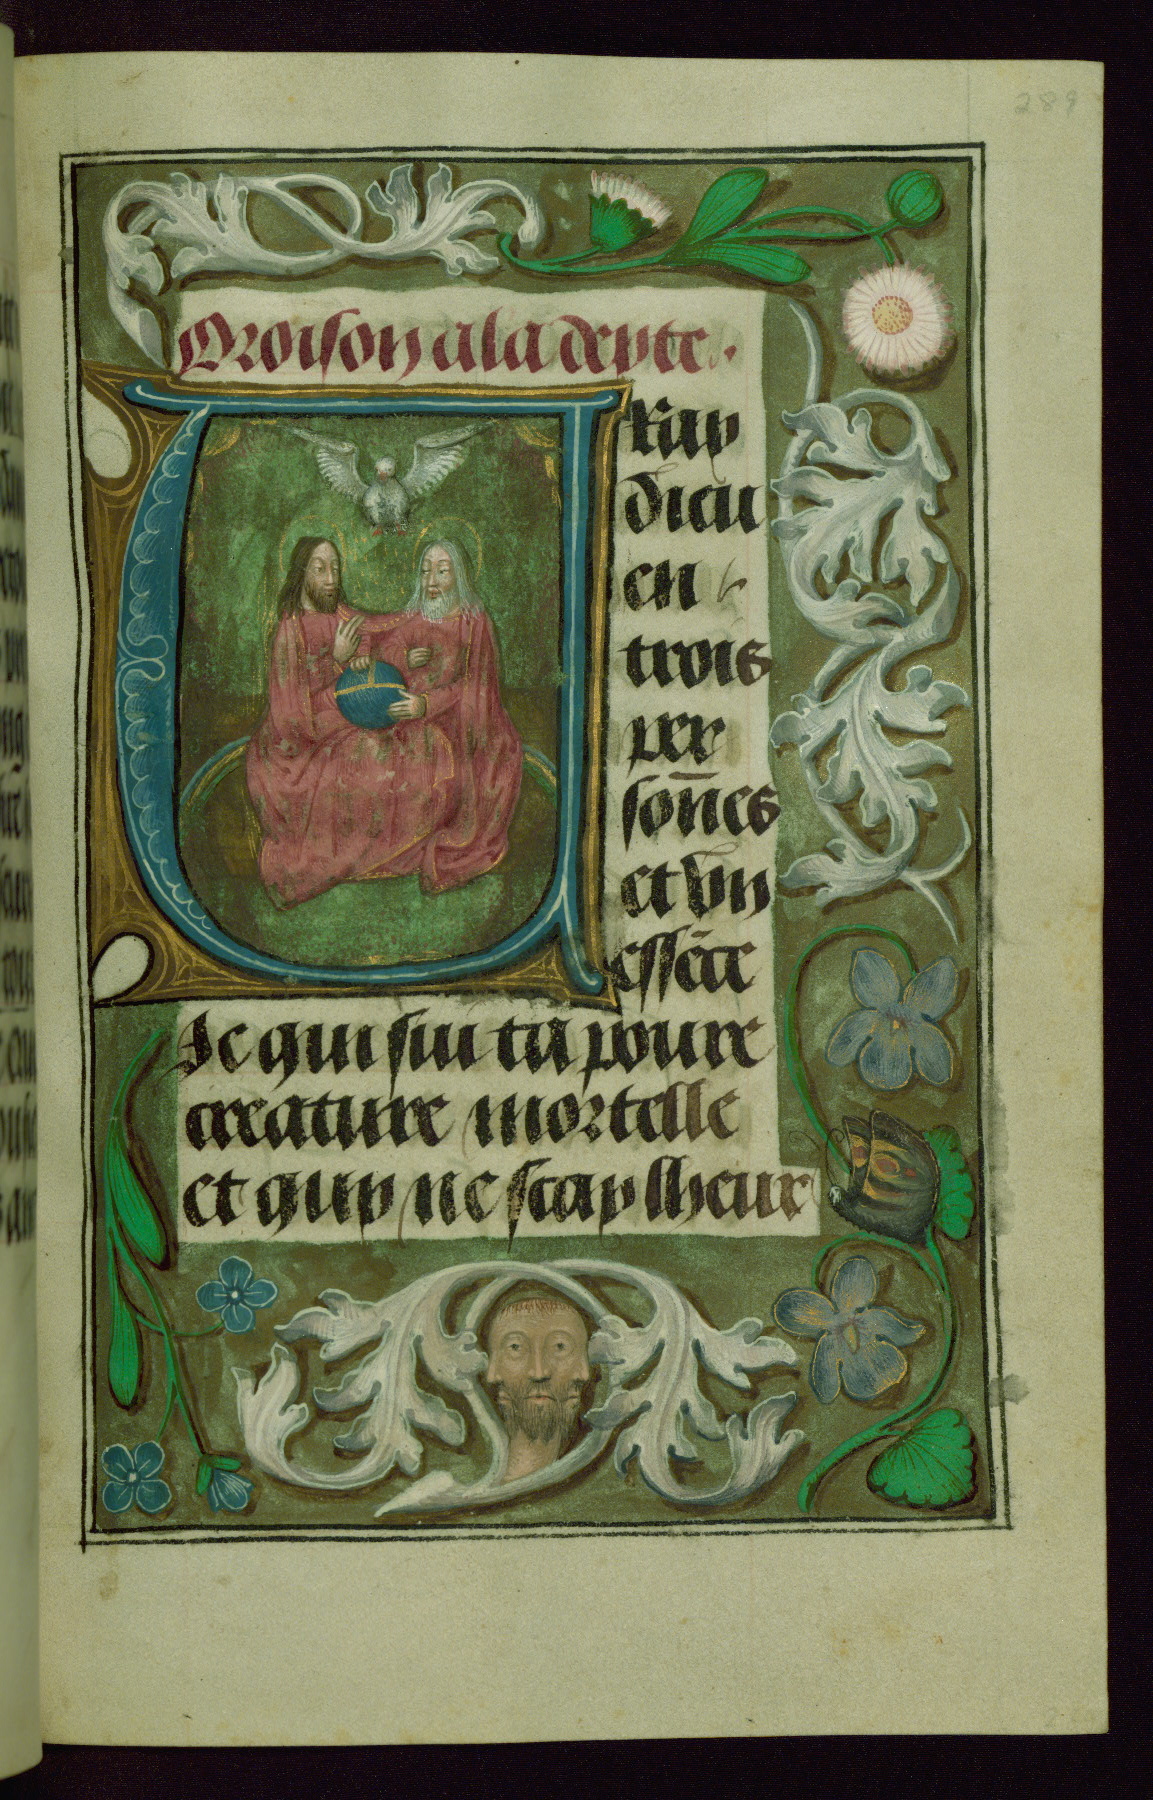 289
Oroison a la deyte.
Vray
dieu
en
trois
per
soñes
et vn
essēce
Je qui sui ta poure
creature mortelle
et quy ne scay lheure